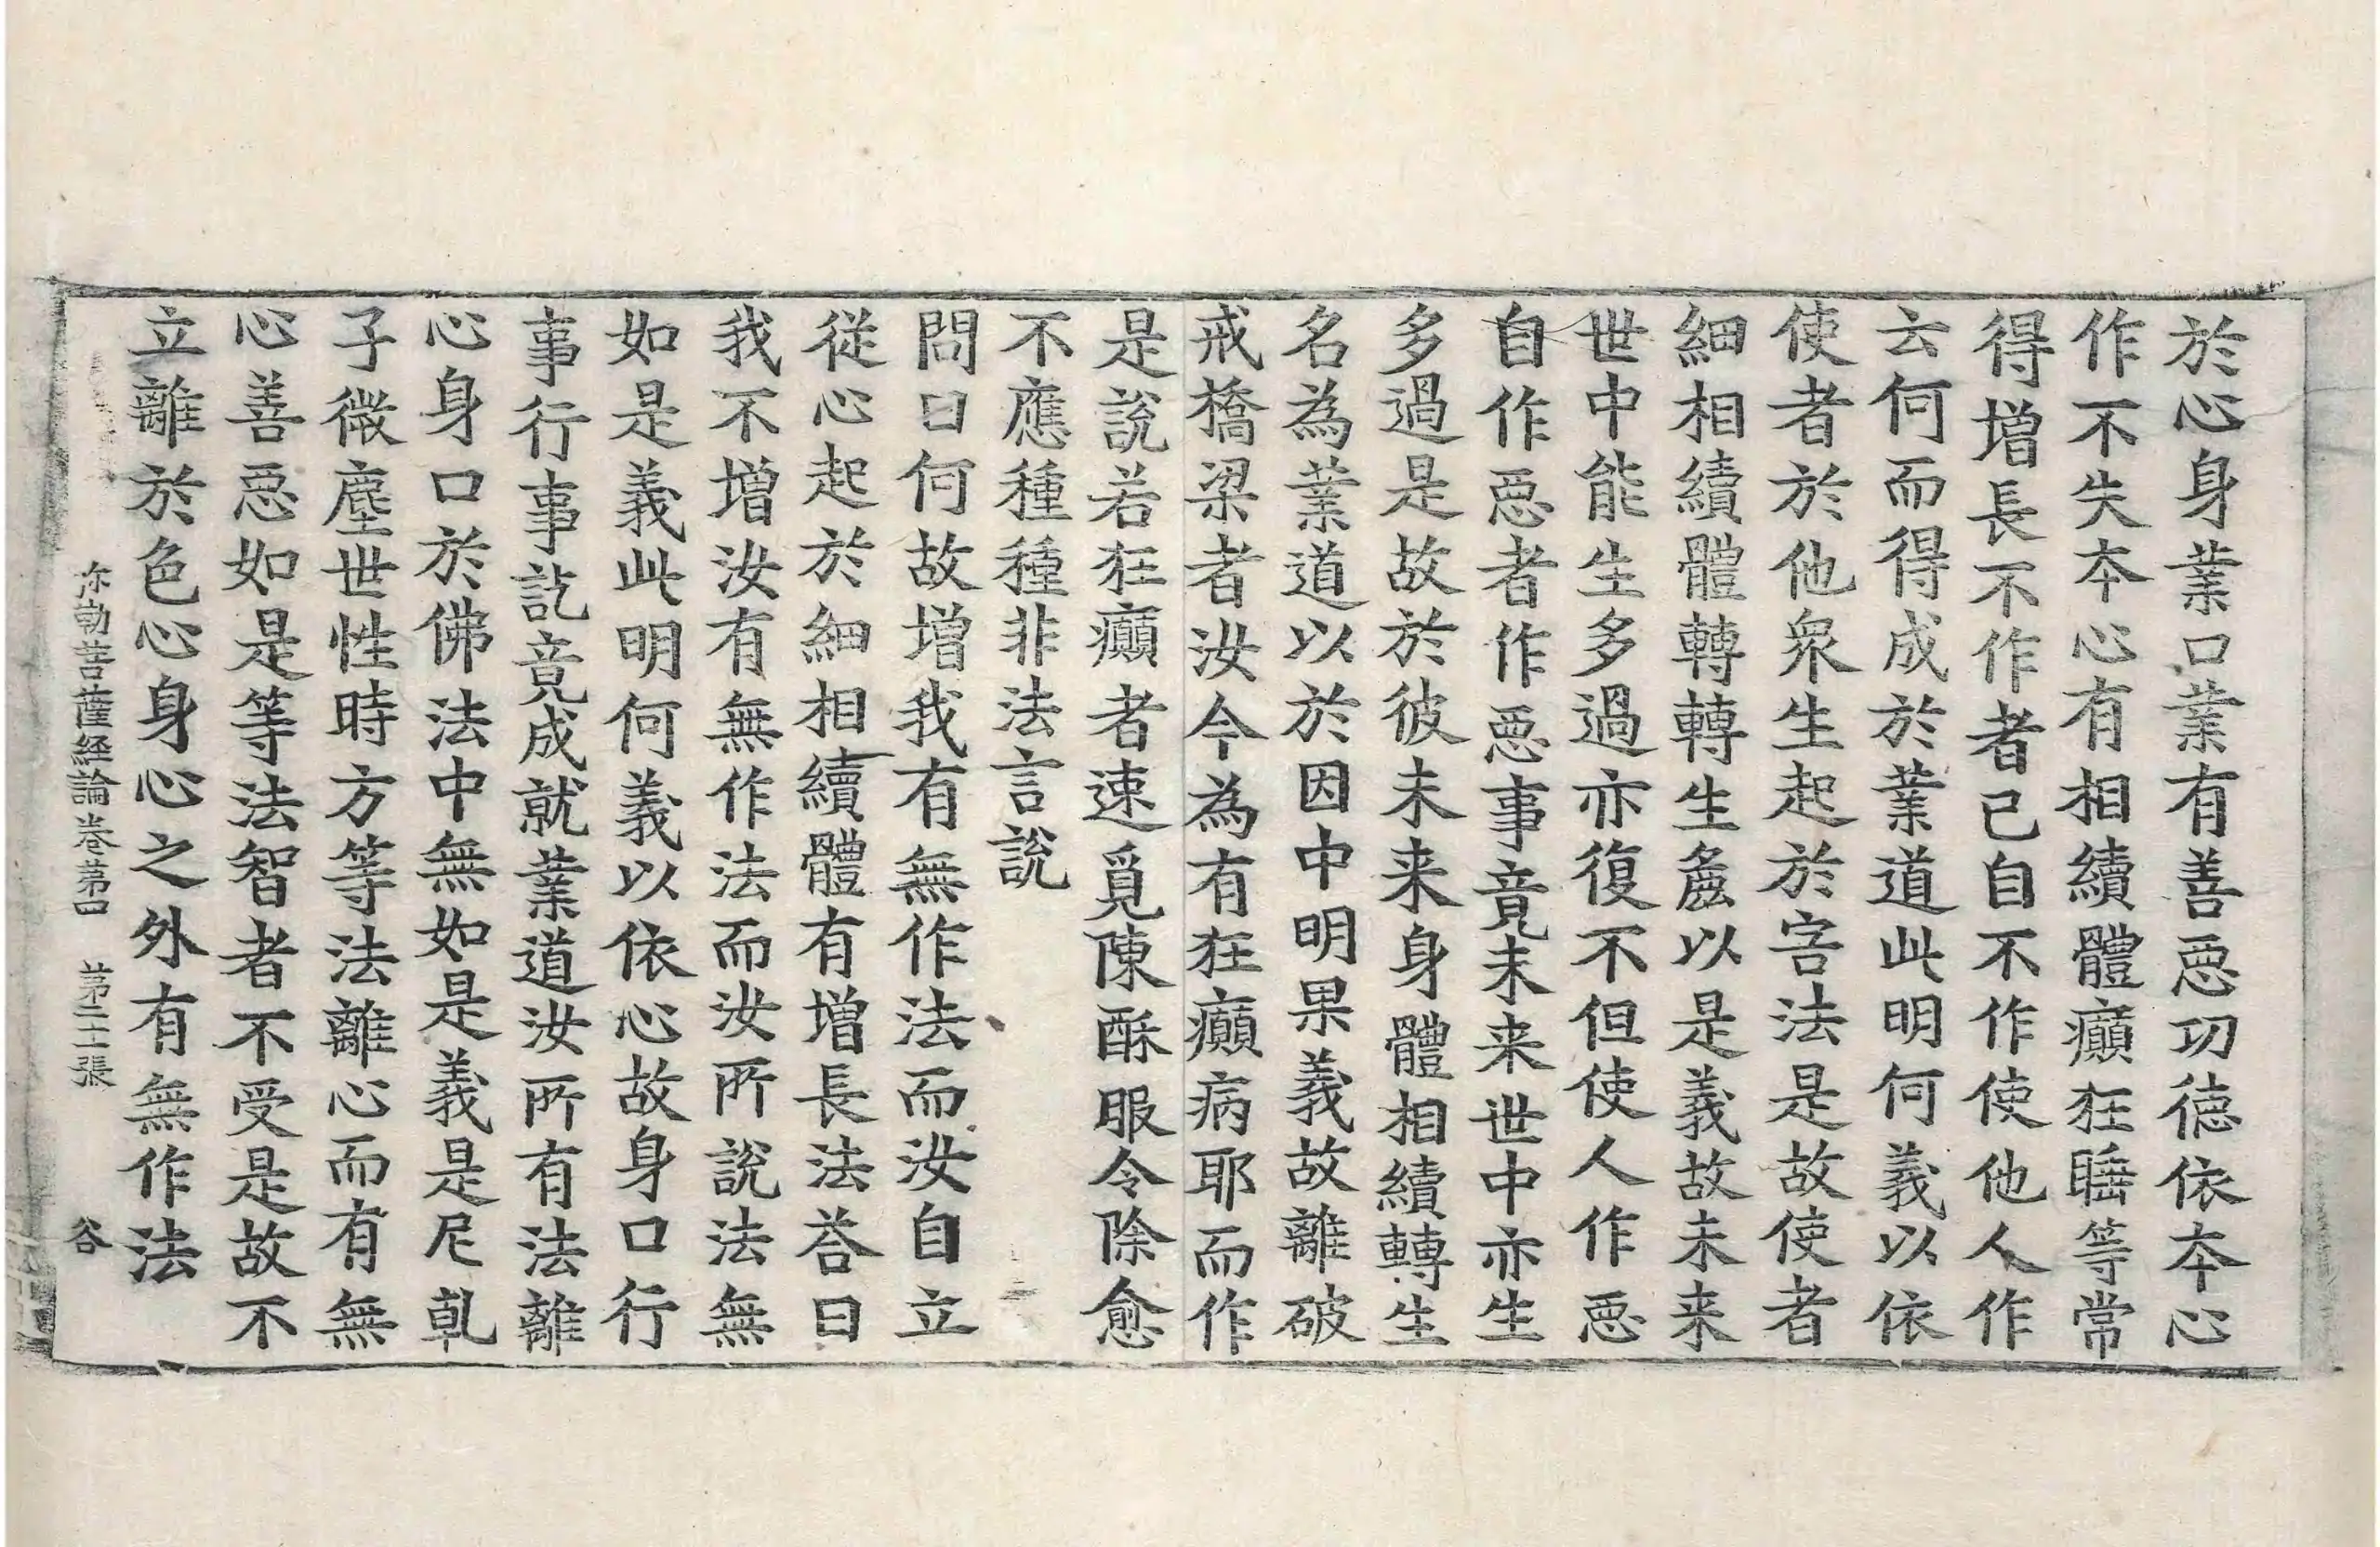 於心身業口業有善惡功德依本心
作不失本心有相續體癲狂睡等常
得增長不作者己自不作使他人作
云何而得成於業道此明何義以依
使者於他衆生起於害法是故使者
細相續體轉轉生麁以是義故未来
世中能生多過亦復不但使人作惡
自作惡者作惡事竟未来世中亦生
多過是故於彼未来身體相續轉生
名為業道以於因中明果義故離破
戒橋梁者汝今為有狂癲病耶而作
是說若狂癲者速覓陳酥服令除愈
不應種種非法言說
問曰何故增我有無作法而汝自立
從心起於細相續體有增長法荅曰
我不增汝有無作法而汝所說法無
如是義此明何義以依心故身口行
事行事訖竟成就業道汝所有法離
心身口於佛法中無如是義是尼乹
子微塵世性時方等法離心而有無
心善惡如是等法智者不受是故不
立離於色心身心之外有無作法
弥勒菩薩経論卷苐四 苐二十張 谷